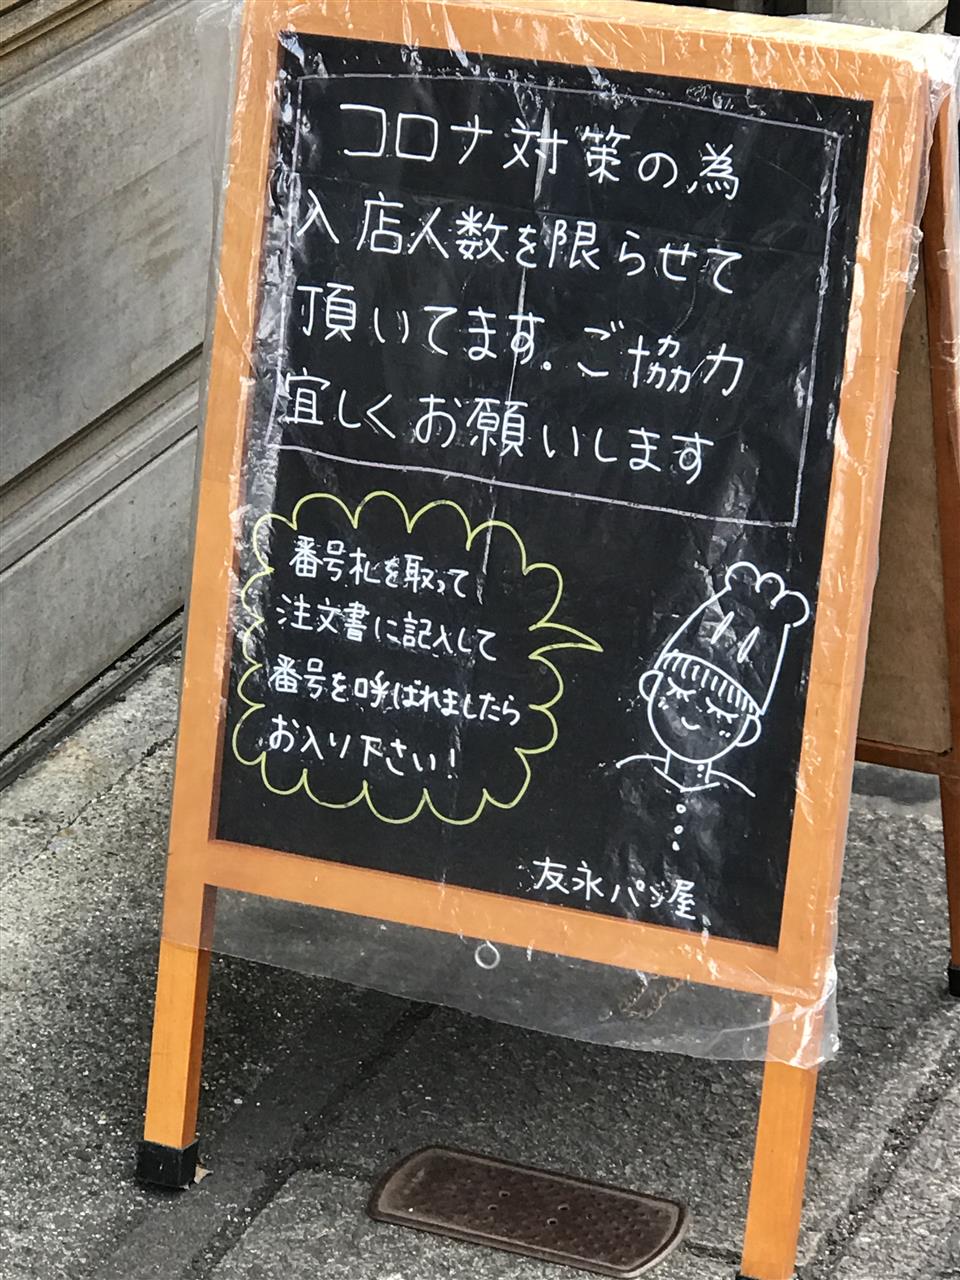 コロナ対策の為
入店人数を限らせて
頂いてます。ご協力
宜しくお願いします
番号札を取って
注文書に記入して
番号を呼ばれましたら
お入り下さい!
友永パン屋